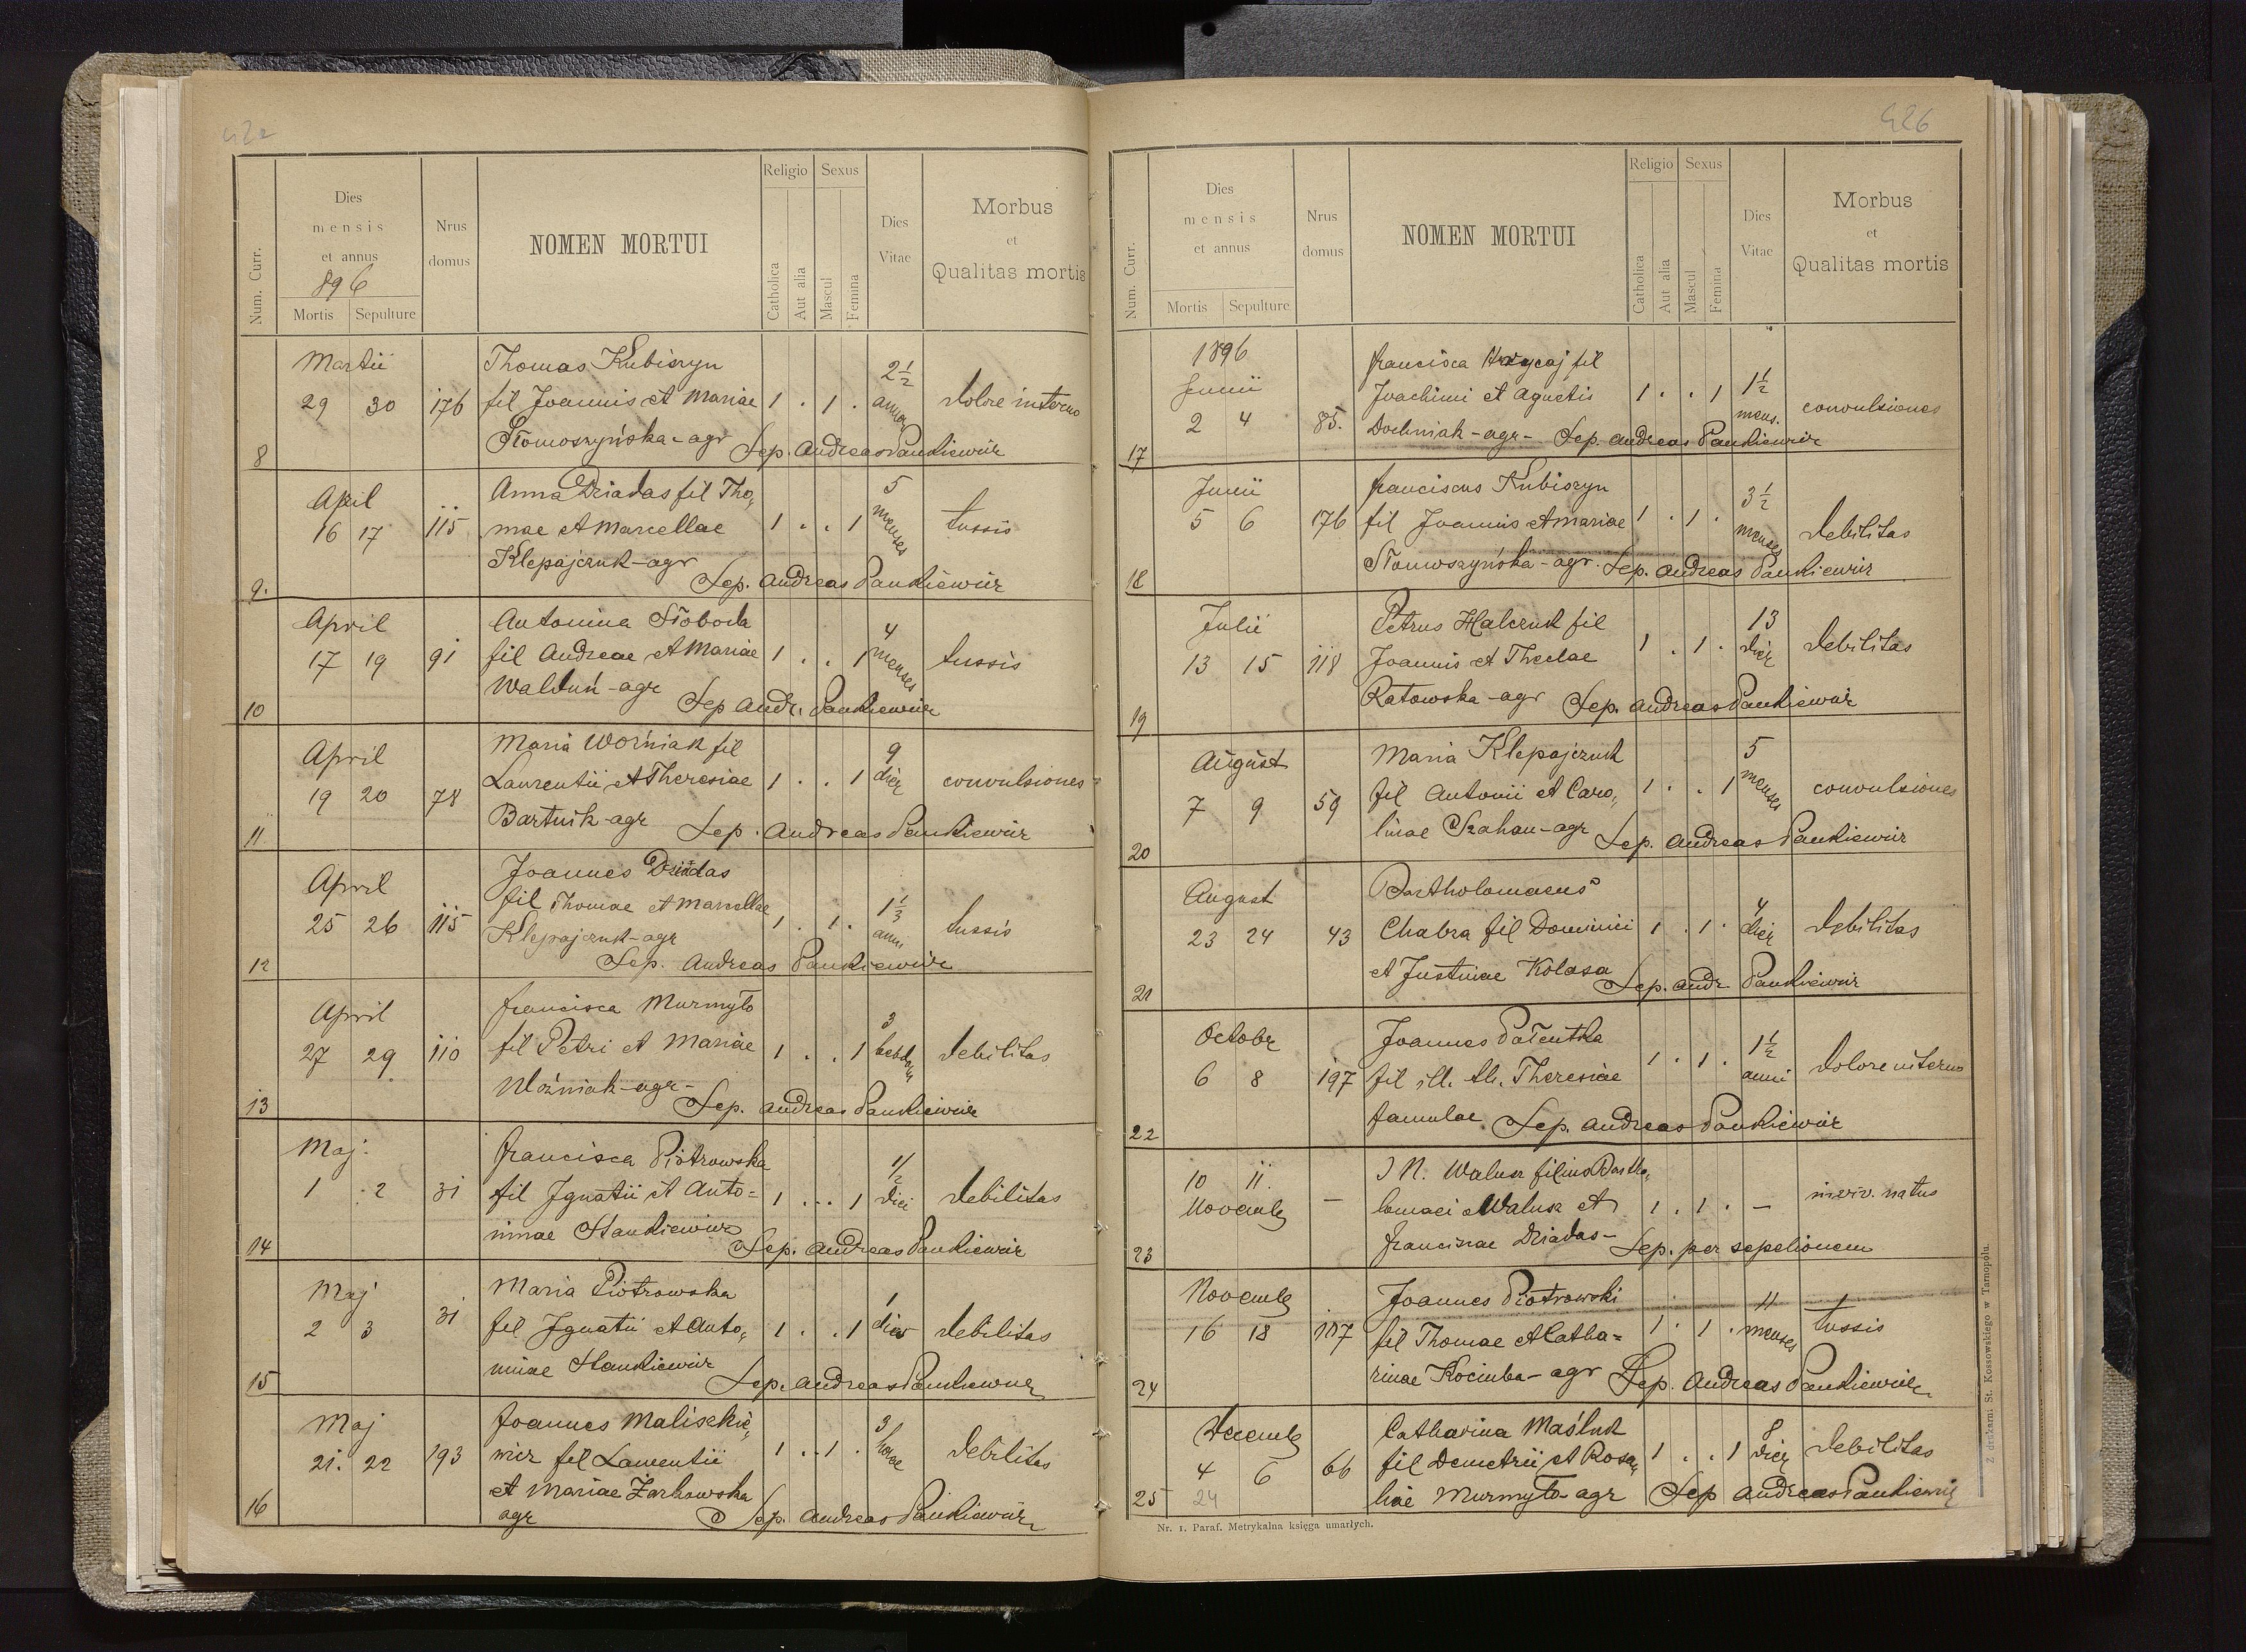 Num. Curr.
Dies
mensis
et annus
896
Mortis Sepulture
Nrus
domus
NOMEN MORTUI
Religio Sexus
Catholica
Aut alia
Mascul
Femina
Dies
Vitae
Morbus
et
Qualitas mortis
Martii Thomas Kubiszyn 2½
29 30 176 fil Joannis et Mariae 1 . 1 . annor dolore interno
8 Słomoszyńska - agr Sep. Andreas Pankiewicz
April Anna Dziadas fil Tho„ 5
16 17 115 mae et Marcellae 1 . . 1 menses tussis
9. Klepajczuk - agr Sep. Andreas Pankiewicz
April Antonina Słoboda 4
17 19 91 fil Andreae et Mariae 1 . . 1 menses tussis
10 Walduń - agr Sep Andr. Pankiewicz
April Maria Woźniak fil 9
19 20 78 Laurentii et Theresiae 1 . . 1 dier convulsiones
11 Bartnik - agr Sep. Andreas Pankiewicz
April Joannes Dziadas
25 26 115 fil Thomae et Marcellae 1 . 1 . 1⅓ anni tussis
12 Klepajczuk - agr
Sep. Andreas Pankiewicz
April Francisca Murmyło 3
27 29 110 fil Petri et Mariae 1 . . 1 hebdom debilitas
13 Woźniak - agr - Sep. Andreas Pankiewicz
Maj. Francisca Piotrowska ½
1 2 31 fil Ignatii et Anto= 1 . . . 1 diei debilitas
14 ninae Stankiewicz Sep. Andreas Pankiewicz
Maj Maria Piotrowska 1
2 3 31 fil Ignatii et Anto„ 1 . . 1 dies debilitas
15 ninae Stankiewicz Sep. Andreas Pankiewicz
Maj Joannes Maliszkie„ 3
21. 22 193 wicz fil Laurentii 1 . . 1 . horae debilitas
16 et Mariae Żarkowska
agr Sep. Andreas Pankiewicz
426
Num. Curr.
Dies
mensis
et annus
Mortis Sepulture
Nrus
domus
NOMEN MORTUI
Religio Sexus
Catholica
Aut alia
Mascul
Femina
Dies
Vitae
Morbus
et
Qualitas mortis
1896 Francisca fil
Junii Joachimi et Agnetis 1 . . 1 1½ mens. convulsiones
17 2 4 85. Dochniak - agr - Sep. Andreas Pankiewicz
Junii Franciscus Kubiszyn 3½
5 6 176 fil Joannis et Mariae 1 . 1 . menses debilitas
18 Słomoszyńska - agr. Sep. Andreas Pankiewicz
Julii Petrus Halczuk fil 13
13 15 118 Joannis et Theclae 1 . 1 . dier debilitas
19 Ratowska - agr Sep. Andreas Pankiewicz
August Maria Klepajczuk 5
7 9 59 fil Antonii et Caro„ 1 . . 1 menses convulsiones
20 linae Szahan - agr Sep. Andreas Pankiewicz
August Bartholomaeus 4
23 24 43 Chabza fil Dominici 1 . 1 . dier debilitas
21 et Justinae Kolasa Sep. Andr Pankiewicz
October Joannes Pałentka 1½
6 8 197 fil ill. th. Theresiae 1 . 1 . anni dolore interno
22 famulae Sep. Andreas Pankiewicz
10 11. — J N. Walusz filius Bartho„
Novemb lomaei Walusz et 1 . 1 . — inviv. natus
23 Franciszae Dziadas - Sep. per sepelionem
Novemb Joannes Piotrowski 11
16 18 107 fil Thomae et Catha= 1 . 1 . menses tussis
24 rinae Kociuba - agr Sep. Andreas Pankiewicz
Decemb Catharina Maśluk 8
4 6 66 fil Demetrii et Rosa„ 1 . . 1 dier debilitas
25 24 liae Murmyło - agr Sep Andreas Pankiewicz
Nr. 1. Paraf. Metrykalna księga umarłych.
Z drukarni St. Kossowskiego w Tarnopolu.